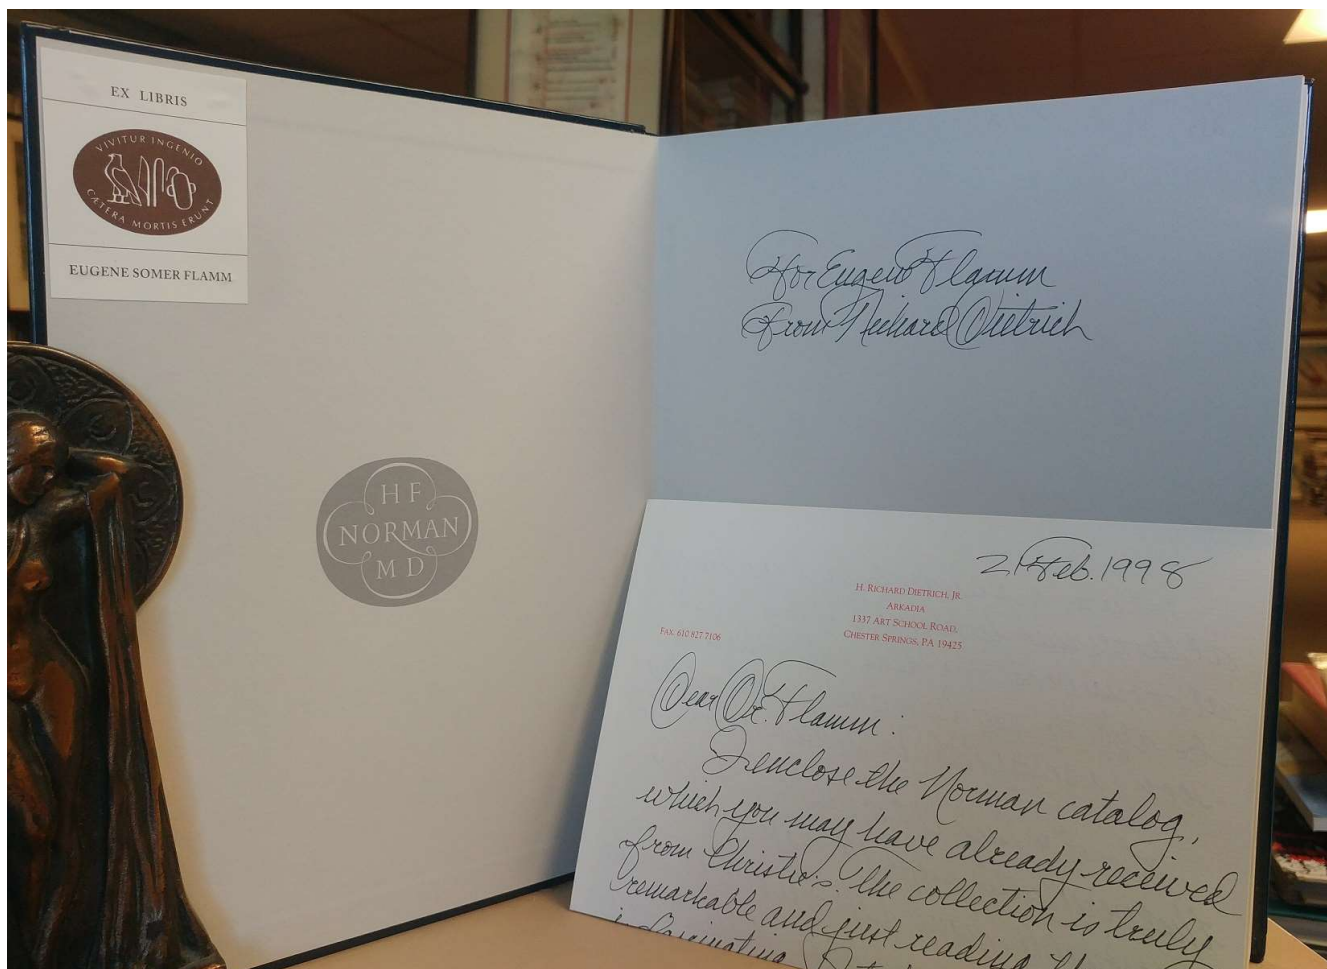 EX LIBRIS
VIVITUR INGENIO
CÆTERA MORTIS ERUNT
EUGENE SOMER FLAMM
H F
NORMAN
M D
For Eugene Flamm
from Richard Dietrich
21 Feb. 1998
H. RICHARD DIETRICH, JR.
ARKADIA
1337 ART SCHOOL ROAD,
CHESTER SPRINGS, PA 19425
FAX: 610 827-7106
Dear Dr. Flamm:
I enclose the Norman catalog,
which you may have already received
from Christie's. The collection is truly
remarkable and just reading
is fascinating